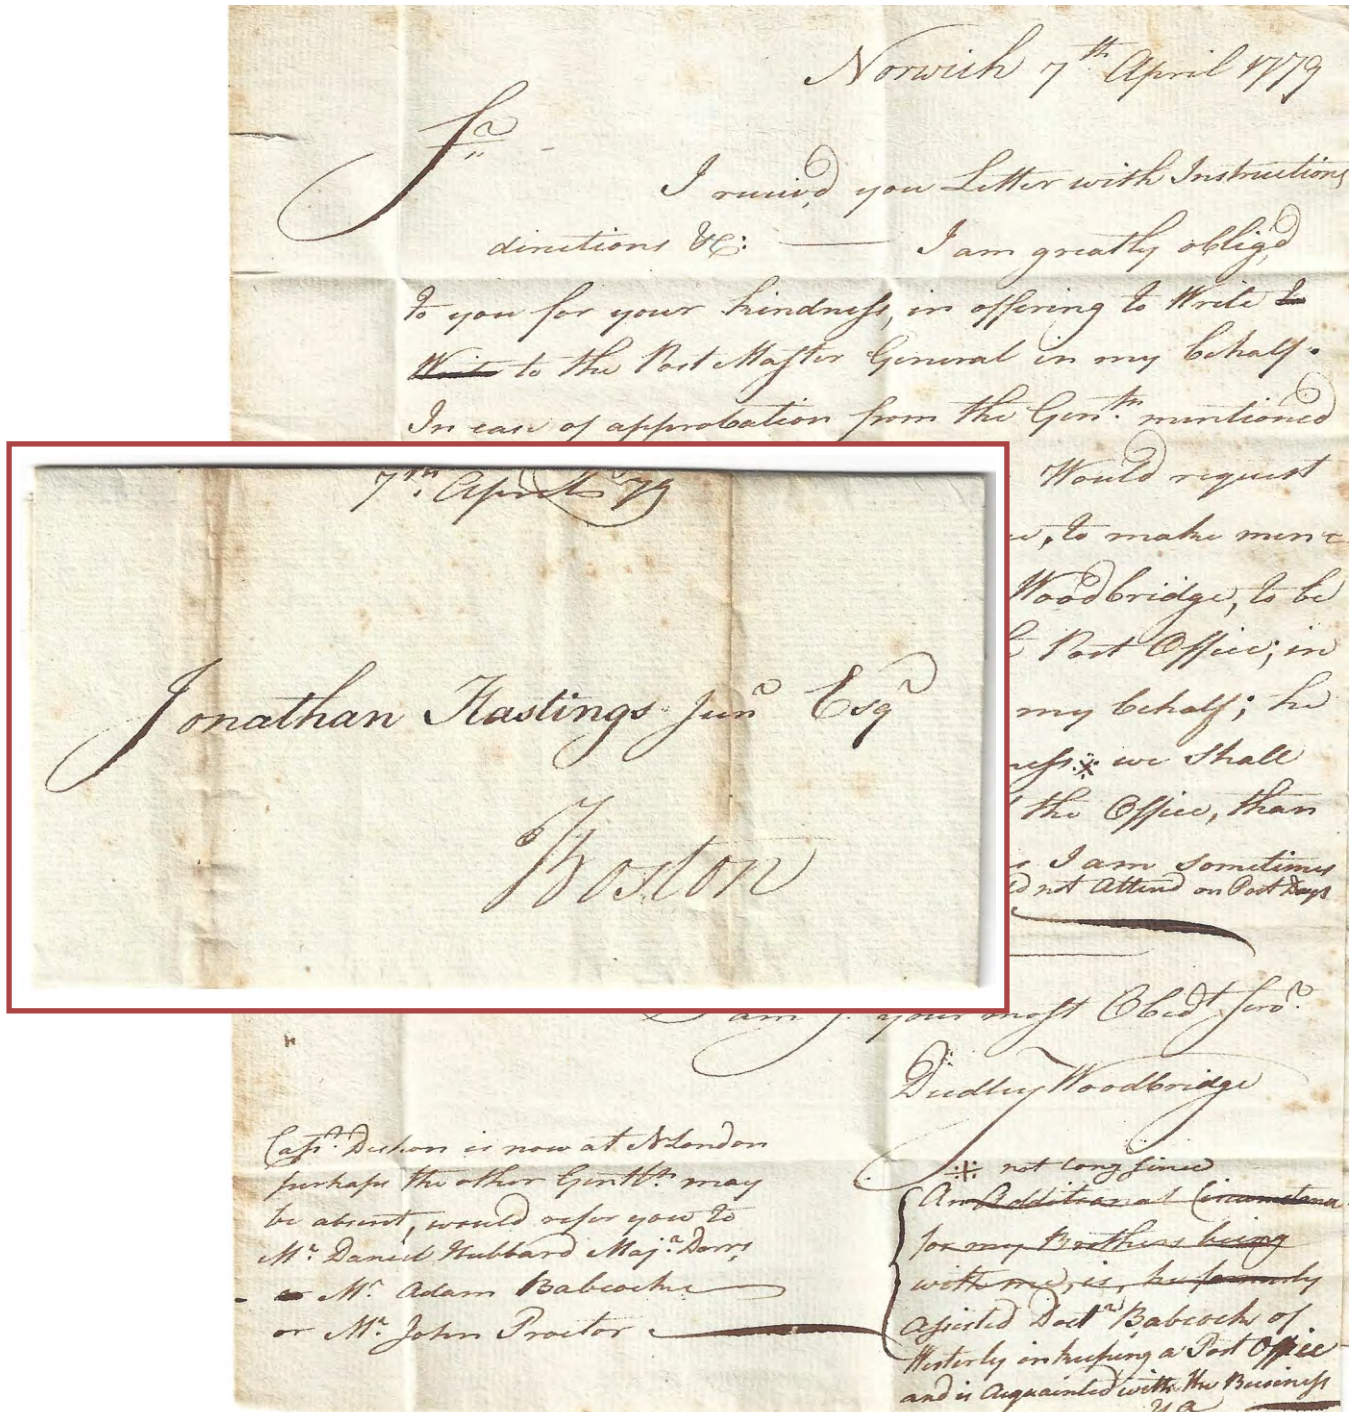 Norwich 7th April 1779
Sr
I reciev'd you Letter with Instructions
directions &C: I am greatly oblig'd
to you for your kindness, in offering to Write to
Write to the Post Master General in my behalf.
In case of approbation from the Gentn. mentioned
Would request
to make men-
Woodbridge, to be
Post Office; in
my behalf; he
we Shall
the Office, than
I am sometimes
not Attend on Post Days
7th. April 79
Jonathan Hastings Junr Esqr
Boston
am Sr. your most Obedt Servt.
Dudley Woodbridge
Capt. Deshon is now at NLondon
perhaps the other Gentln. may
be absent, would refer you to
Mr. Daniel Hubbard Majr. Dorrs,
or Mr. Adam Babcocke
or Mr. John Proctor
not long since
An Additional Circumstance
for my Brothers being
with me, is, he formerly
assisted Doctr Babcock of
Westerly in keeping a Post Office
and is Acquainted with the Business